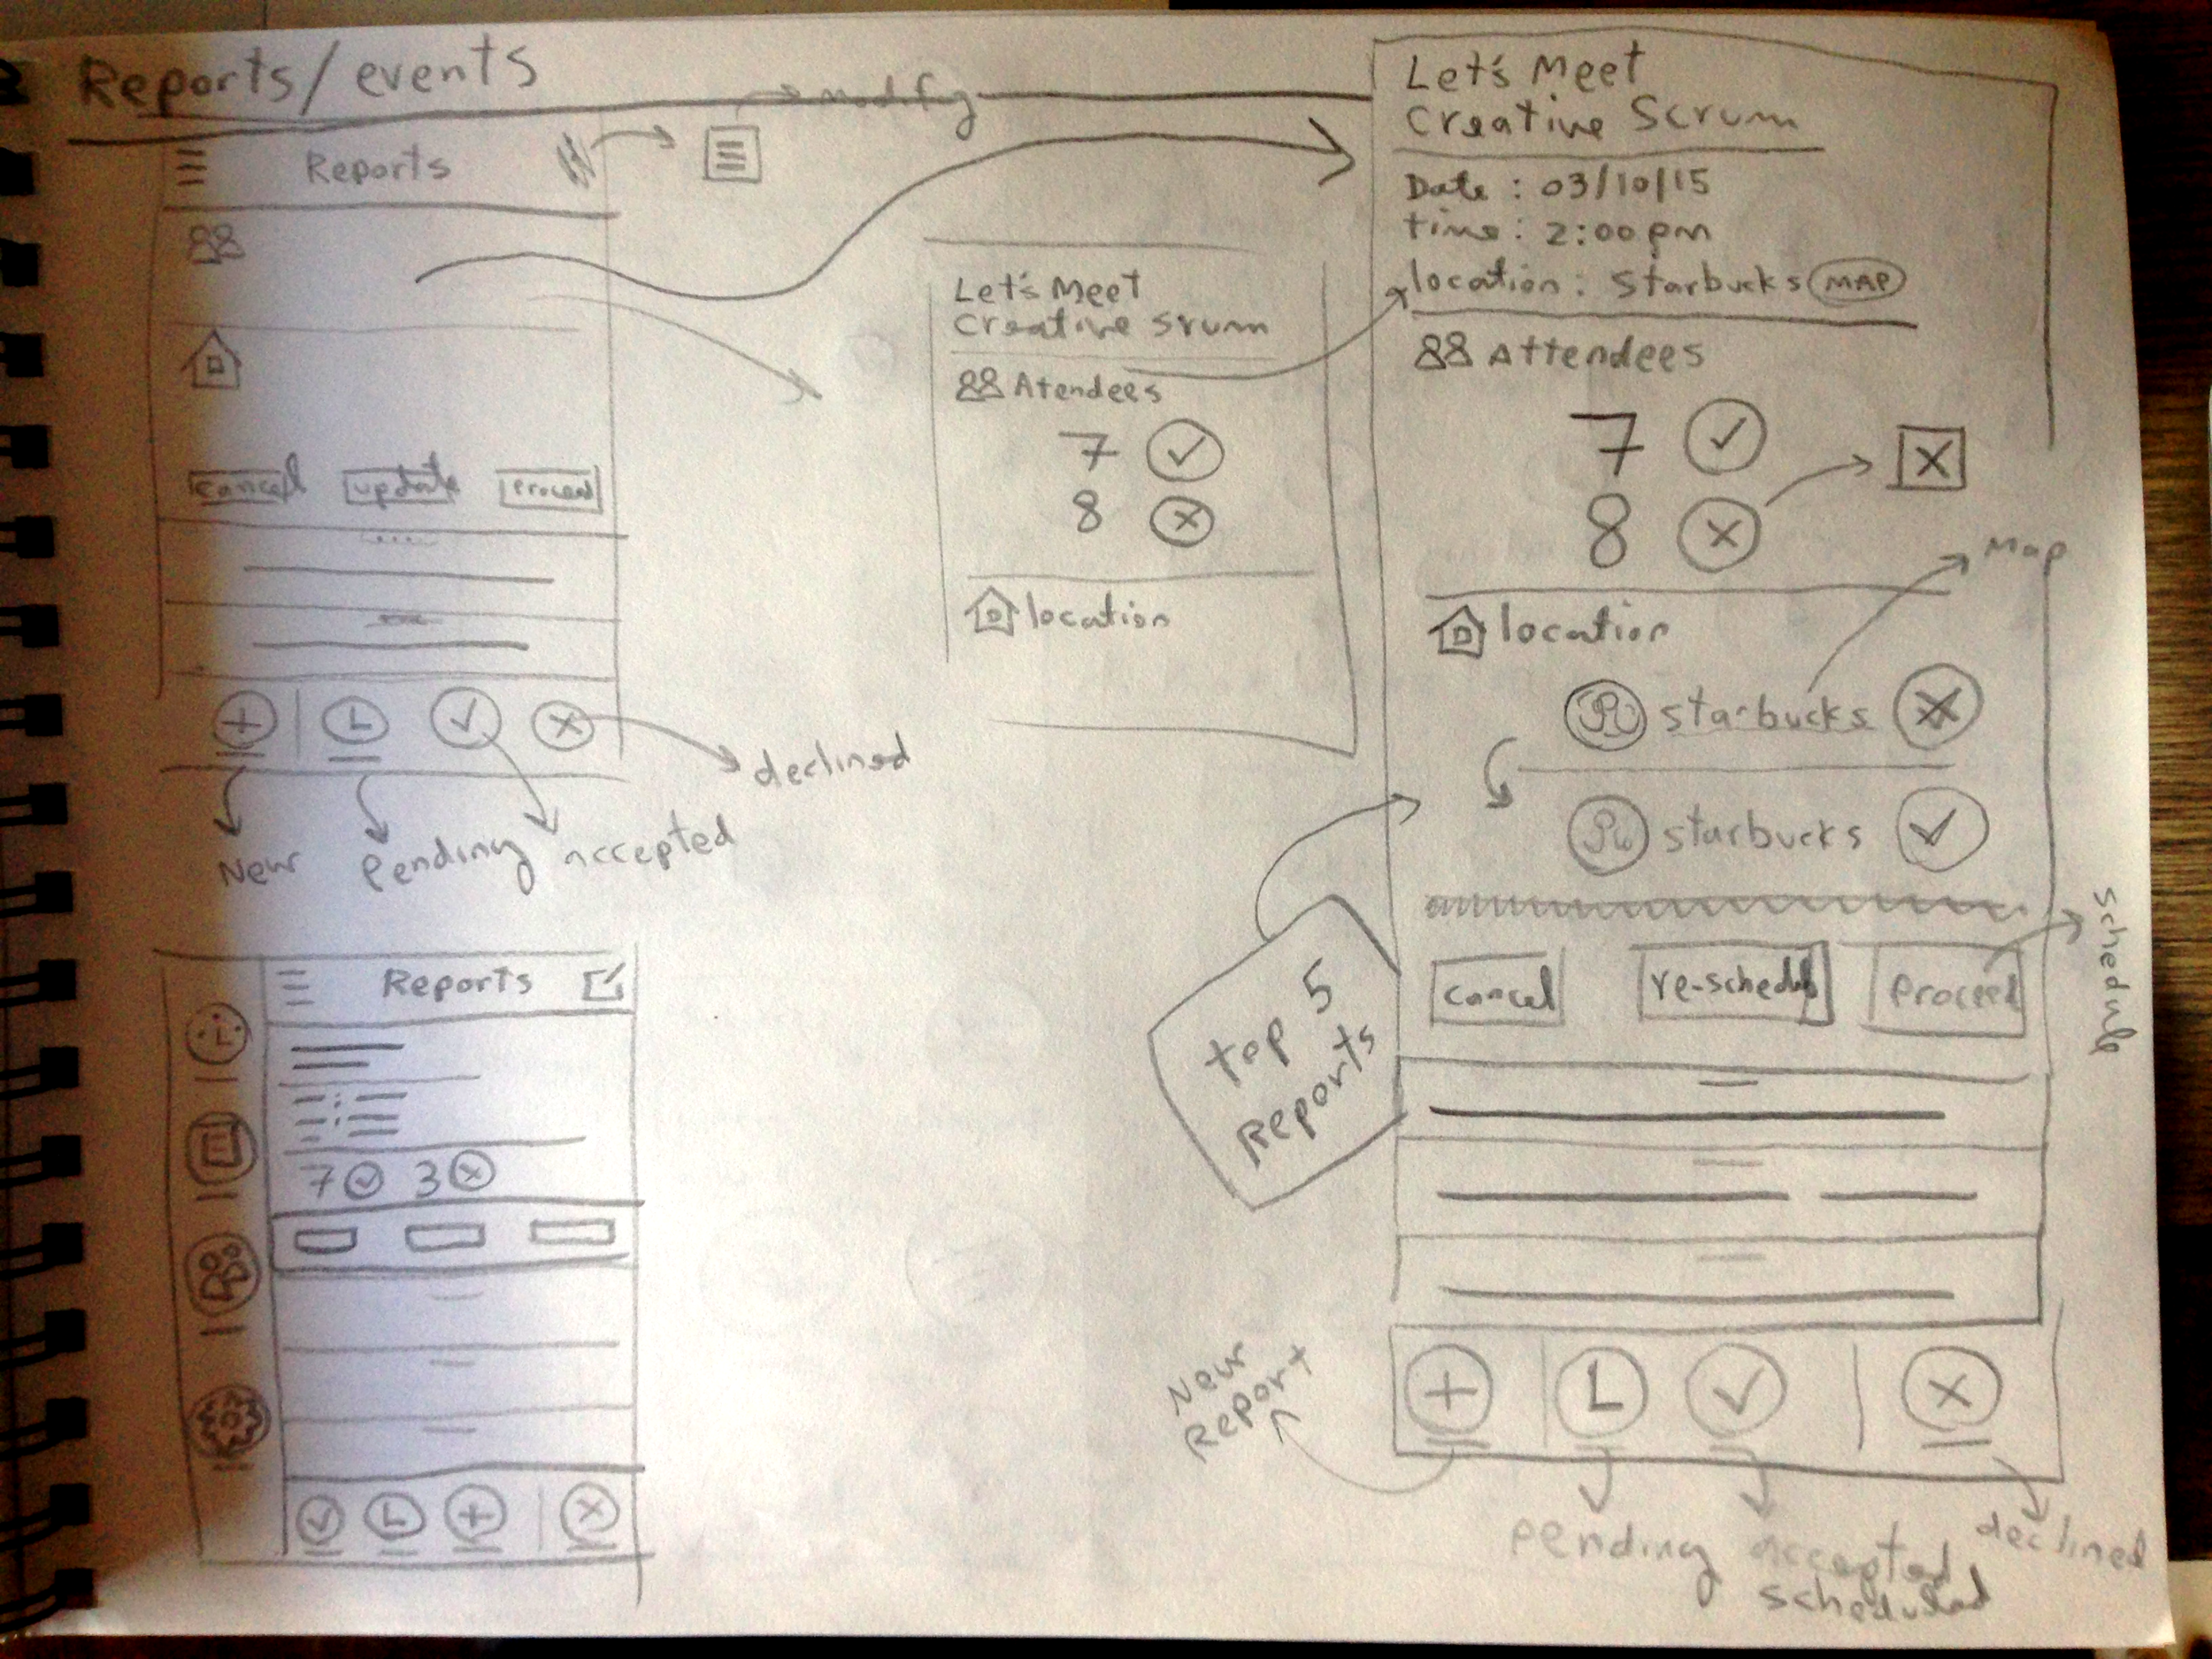 Reports/events
modify
Reports
cancel update Proceed
New
Pending
accepted
declined
Reports
7 3
Let's Meet
Creative Srum
Atendees
7
8
location
top 5
Reports
Let's Meet
Creative Scrum
Date : 03/10/15
time : 2:00 pm
location : Starbucks MAP
Attendees
7
8
Map
location
starbucks
starbucks
cancel re-schedul Proceed
schedule
New
Report
Pending
accepted
scheduled
declined